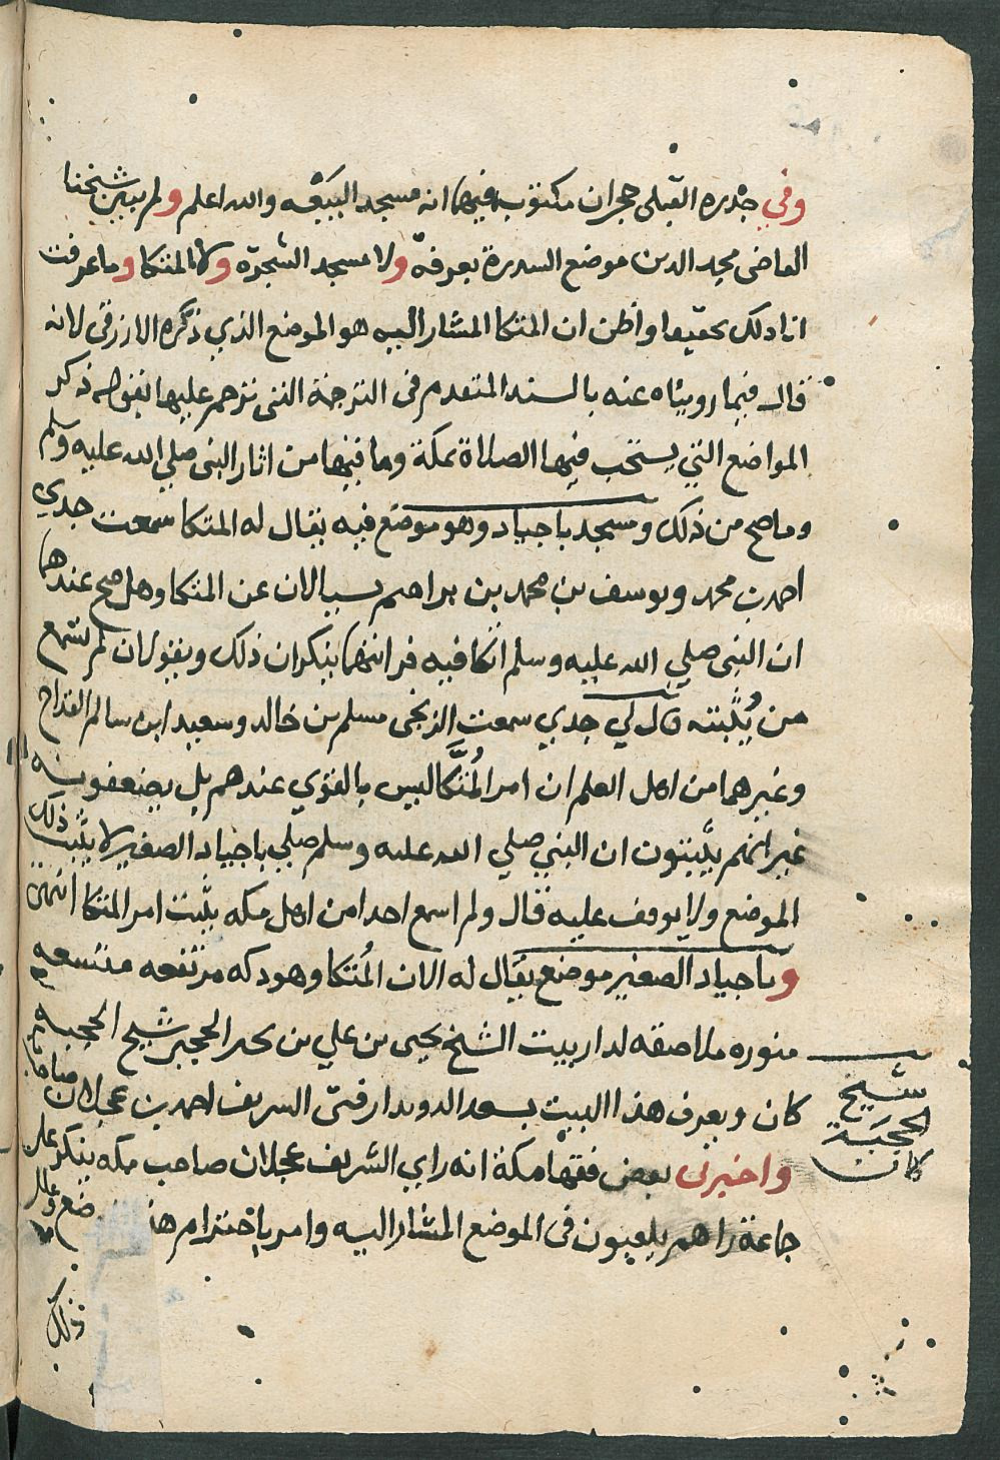 وفي جدره القبلى حجران مكتوب فيهما انه مسجد البيعه والله اعلم ولم يبين شيخنا
القاضى مجد الدين موضع السدرة بعرفة ولا مسجد الشجرة ولا المتكا وما عرفت
انا ذلك تحقيقا واظن ان المتكا المشار اليه هو الموضع الذي ذكره الازرقى لانه
قال فيما رويناه عنه بالسند المتقدم فى الترجمة التى ترجم عليها بقوله ذكر
المواضع التي يستحب فيها الصلاة بمكة وما فيها من اثار النبى صلي الله عليه وسلم
وما صح من ذلك ومسجد باجياد وهو موضع فيه يقال له المتكا سمعت جدي
احمد بن محمد ويوسف بن محمد بن براهيم يسالان عن المتكا وهل صح عندهما
ان النبى صلي الله عليه وسلم اتكا فيه فرايتهما ينكران ذلك ويقولان لم نسمع
من يُثْبته قال لي جدي سمعت الزنجى مسلم بن خالد وسعيد ابن سالم القداح
وغيرهما من اهل العلم ان امر المُتَّكا ليس بالقوي عندهم بل يضعفونه
غير انهم يثبتون ان النبي صلي الله عليه وسلم صلي باجياد الصغير لا يثبت ذلك
الموضع ولا يوقف عليه قال ولم اسمع احدا من اهل مكه يثبت امر المتكا انتهى
وباجياد الصغير موضع يقال له الان المُتكا وهو دكه مرتفعه متسعه
منوره ملاصقه لدار بيت الشيخ يحيى بن علي بن بحر الحجبى شيخ الحجبه
شيخ
الحجبة
كان
كان ويعرف هذا البيت بسعد الدويدار فتى الشريف احمد بن عجلان صاحب
واخبرنى بعض فقها مكة انه راي الشريف عجلان صاحب مكه ينكر على
جماعة راهم يلعبون فى الموضع المشار اليه وامر باحترام هذ ضع وعلل
ذلك